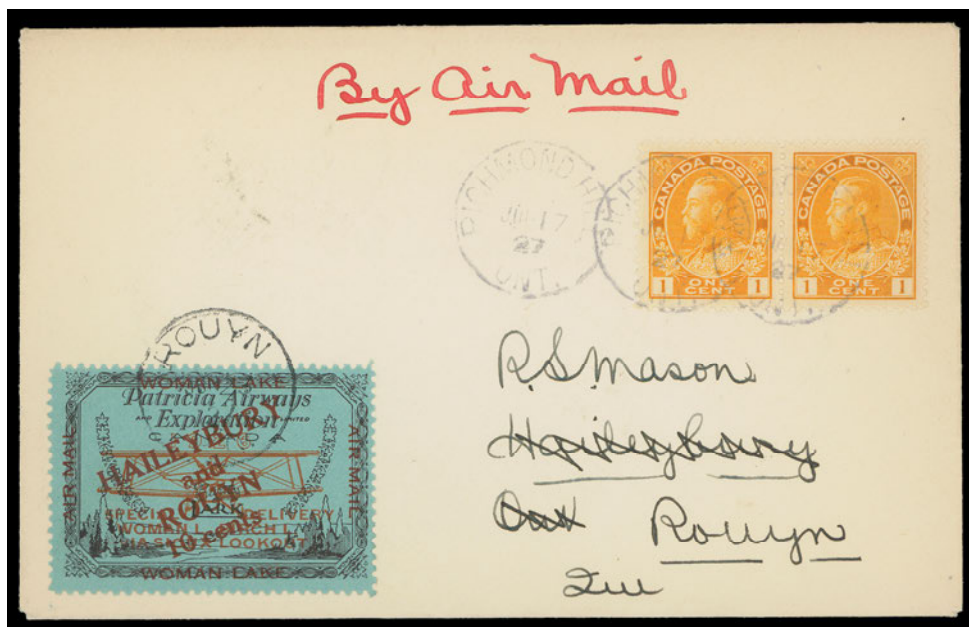 By Air Mail
RICHMOND HILL
17
27
ONT.
CANADA POSTAGE
1 ONE CENT 1
CANADA POSTAGE
1 ONE CENT 1
ROUYN
WOMAN LAKE
Patricia Airways
AND Exploration LIMITED
AIR MAIL
AIR MAIL
HAILEYBURY
and
ROUYN
10 cents
SPECIAL DELIVERY
WOMAN L.
VIA SIOUX LOOKOUT
WOMAN LAKE
R.S. Mason
Haileybury
Ont Rouyn
Que